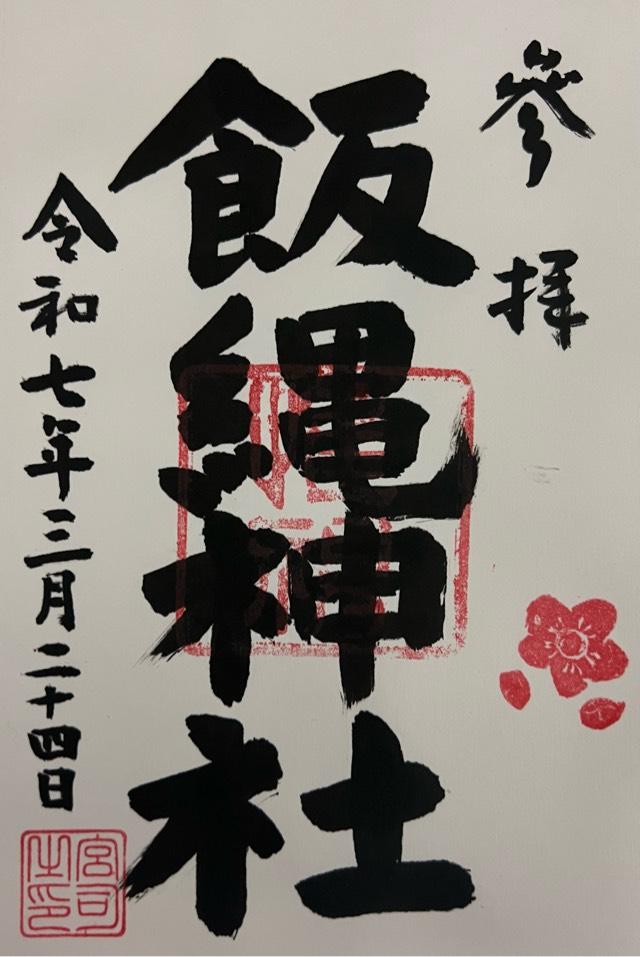 參拝
飯縄神社
令和七年三月二十四日
宮司之印